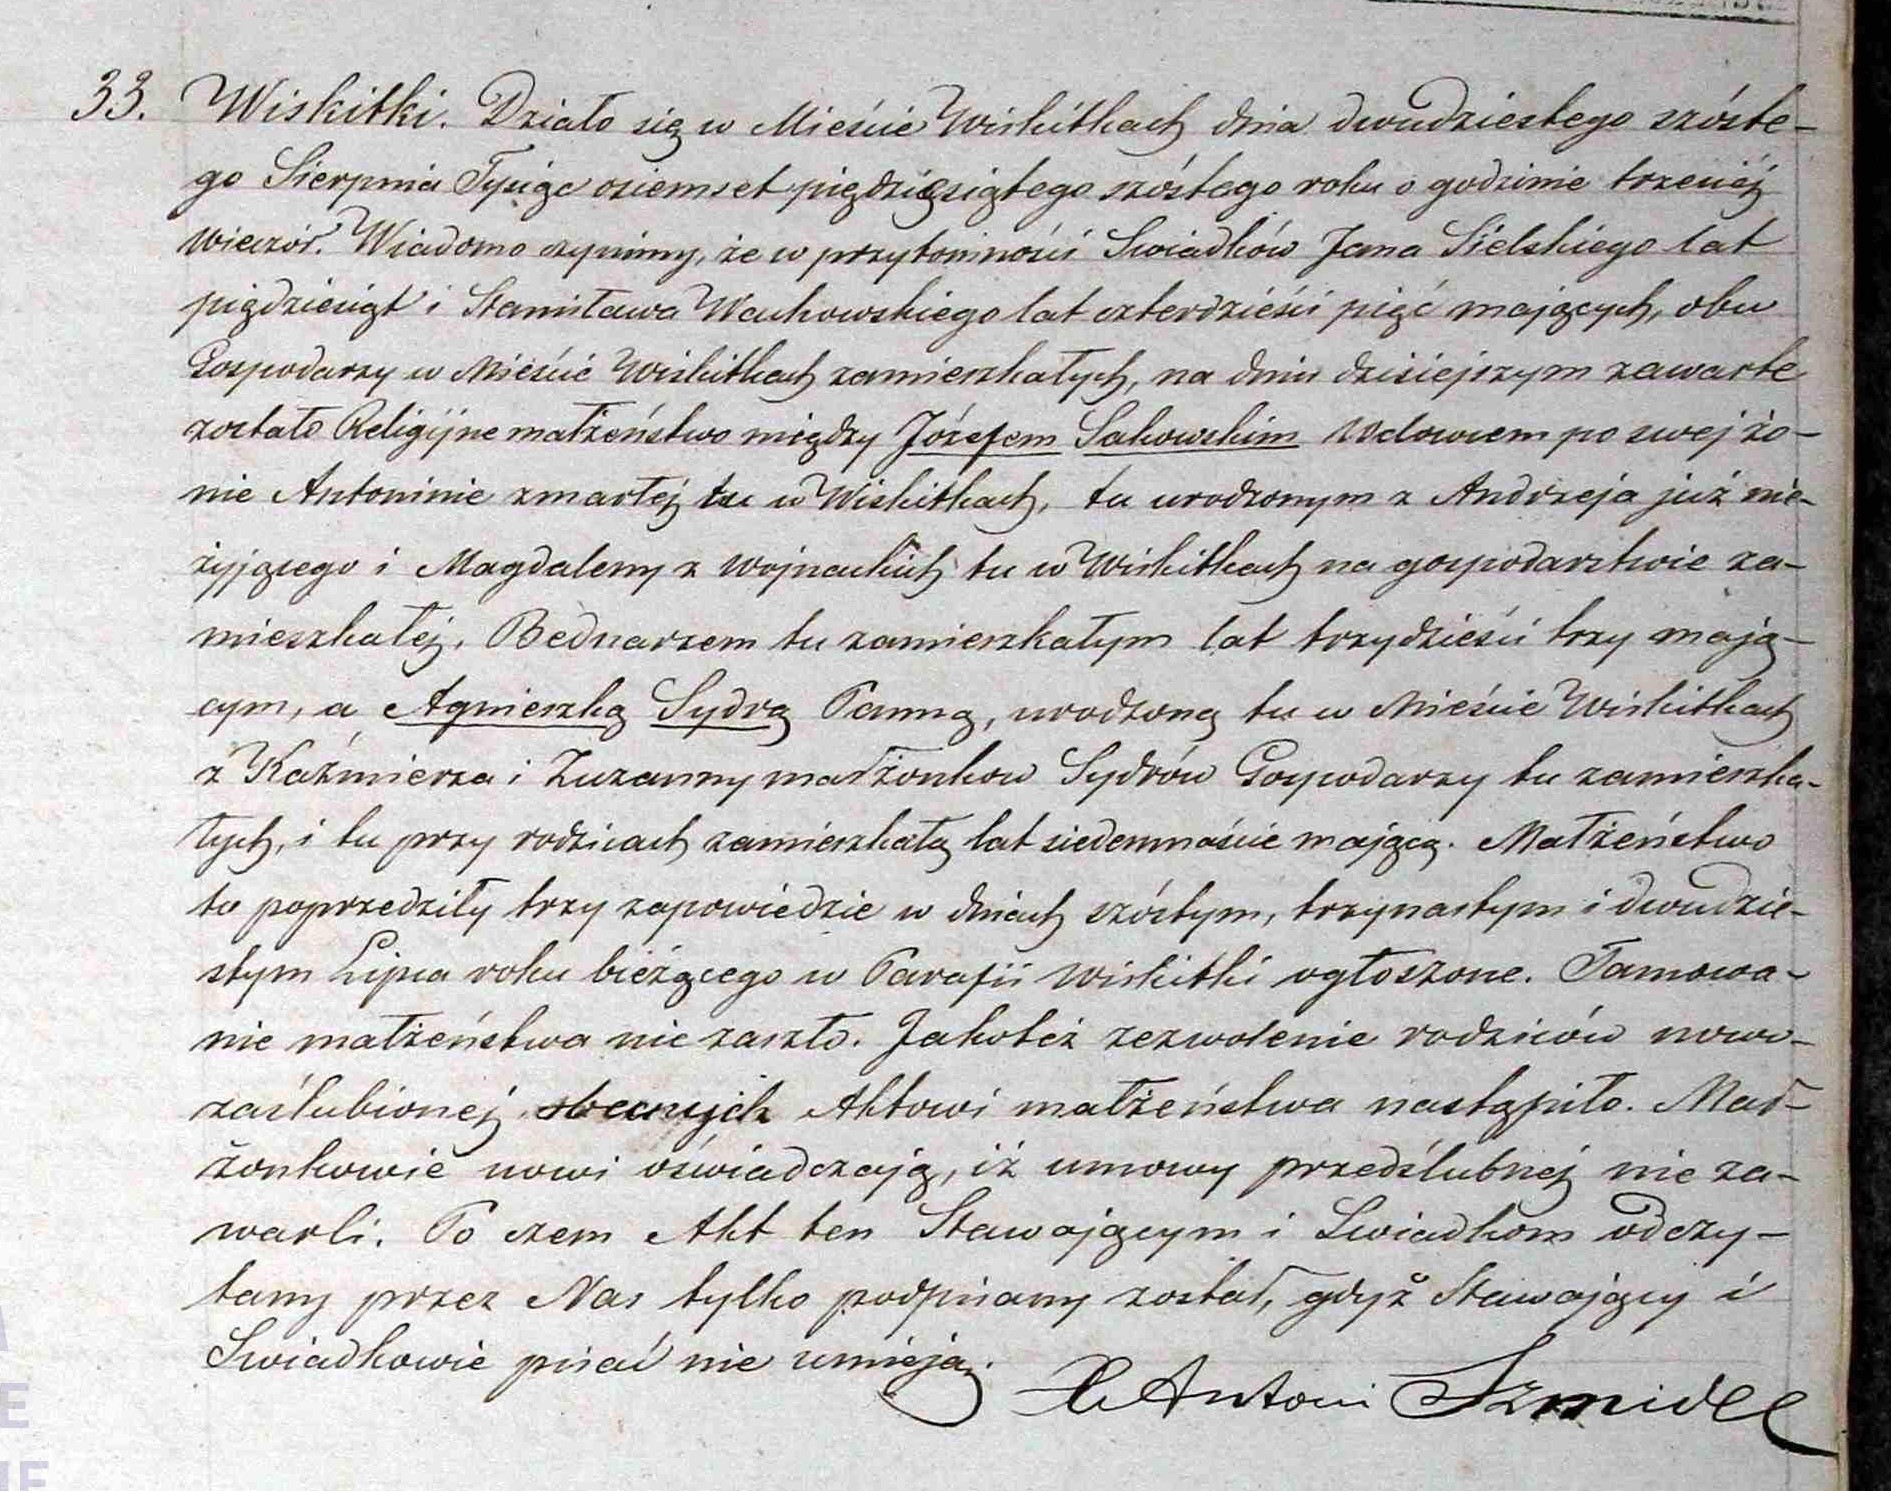 33. Wiskitki. Działo się w Mieście Wiskitkach dnia dwudziestego szóste-
go Sierpnia Tysiąc osiemset pięgdziesiątego szóstego roku o godzinie trzeciéj
wieczór. Wiadomo czynimy, że w przytomności Swiadków Jana Sielskiego lat
pięgdziesiąt i Stanisława Wachowskiego lat czterdzieści pięć mających, obu
Gospodarzy w Mieście Wiskitkach zamieszkałych, na dniu dzisiejszym zawarte
zostało Religijne małżeństwo między Józefem Sakowskim Wdowcem po swej żo-
nie Antoninie zmarłej tu w Wiskitkach, tu urodzonym z Andrzeja już nie-
żyjącego i Magdaleny z Wojnackich tu w Wiskitkach na gospodarstwie za-
mieszkałej, Bednarzem tu zamieszkałym lat trzydzieści trzy mają-
cym, a Agnieszką Sydrą Panną, urodzoną tu w Mieście Wiskitkach
z Kaźmierza i Zuzanny małżonkow Sydrów Gospodarzy tu zamieszka-
łych, i tu przy rodzicach zamieszkałą lat siedemnaście mającą. Małżeństwo
to poprzedziły trzy zapowiedzie w dniach szóstym, trzynastym i dwudzie-
stym Lipca roku bieżącego w Parafii Wiskitki ogłoszone. Tamowa-
nie małżeństwa nie zaszło. Jakoteż zezwolenie rodziców nowo-
zaślubionej obecnych Aktowi małżeństwa nastąpiło. Mał-
żonkowie nowi oświadczają, iż umowy przedślubnej nie za-
warli. Po czem Akt ten Stawającym i Swiadkom odczy-
tany przez Nas tylko podpisany został, gdyż Stawający i
Swiadkowie pisać nie umieją.
X Antoni Szmidel